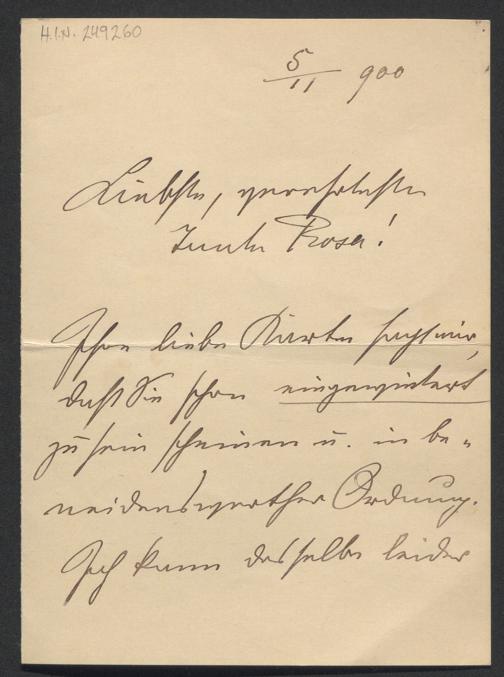 H.I.N. 249260
5/11 900
Liebste, verehrteste
Tante Rosa!
Ihre liebe Karte sagt mir,
daß Sie schon eingewintert
zu sein scheinen u. in be-
neidenswerther Ordnung.
Ich kann dasselbe leider